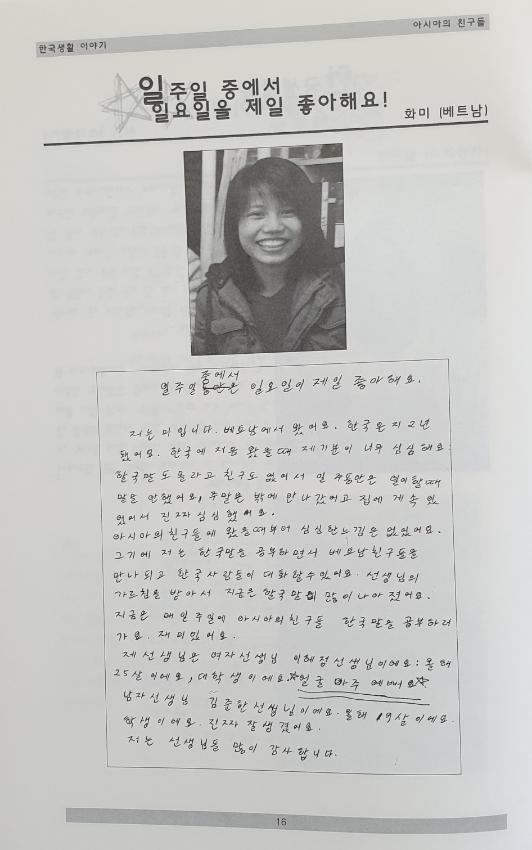 한국생활 이야기
아시아의 친구들
일주일 중에서
일요일을 제일 좋아해요!
화미 (베트남)
중에서
일주일 동안은 일요일이 제일 좋아해요.
저는 미입니다. 베트남에서 왔어요. 한국온지 2년
됐어요. 한국에 처음 왔을때 제기분이 너무 심심해요.
한국말도 모라고 친구도 없어서 일 주동안은 일이할때
말을 안했어요, 주말은 밖에 안나갔어고 집에 계속 있
었어서 진짜 심심했어요.
아시아의친구들에 왔을때부터 심심한느낌은 없었어요.
그기에 저는 한국말을 공부하면서 베트남친구들을
만나되고 한국사람들이 대화할수있어요. 선생님의
가르침을 받아서 지금은 한국말 많이 나아졌어요.
지금은 매일주일에 아시아의친구들 한국말을 공부하러
가요. 재미있어요.
제선생님은 여자선생님 이혜정선생님이에요: 올해
25살이에요, 대학생이에요. 얼굴 아주 예뻐요
남자선생님 김준한선생님이에요. 올해 19살이에요.
학생이에요. 진짜 잘생겼어요.
저는 선생님들 많이 감사합니다.
16